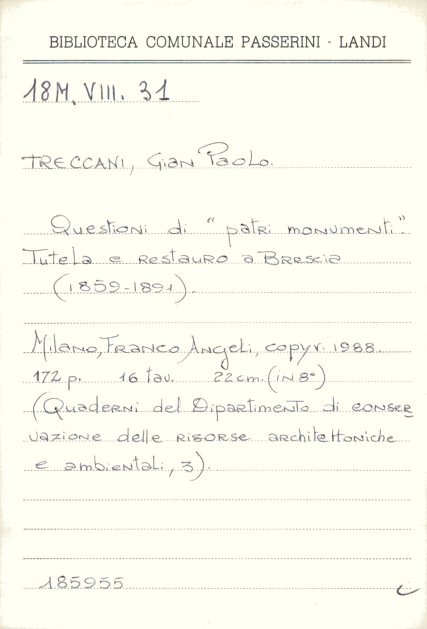 BIBLIOTECA COMUNALE PASSERINI - LANDI
18M. VIII. 31
TRECCANI, Gian Paolo.
Questioni di "patri monumenti".
Tutela e restauro a Brescia
(1859-1891).
Milano, Franco Angeli, copyr. 1988.
172 p. 16 tav. 22 cm. (in 8°)
(Quaderni del Dipartimento di conser
vazione delle risorse architettoniche
e ambientali, 3).
185955